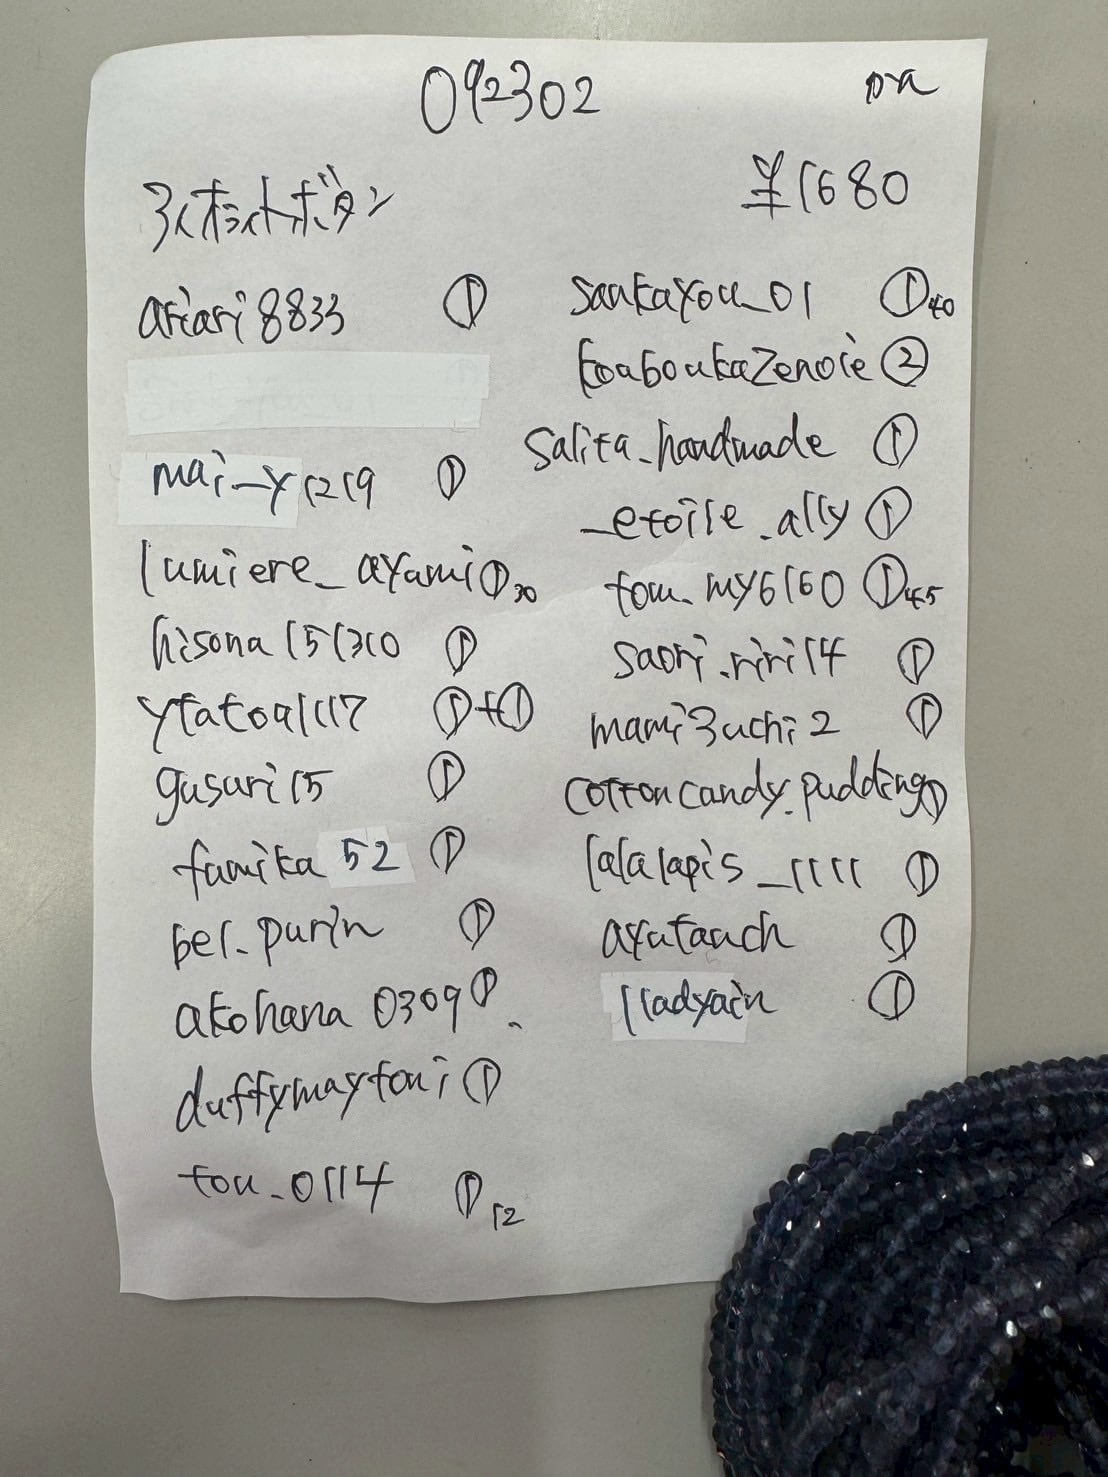 092302
アイオライトボタン
¥1680
ariari8833 ①
mai_y1219 ①
lumiere_ayami ①30
hisona151310 ①
ytatoa1117 ①+①
gusuri15 ①
famika52 ①
bel_purin ①
akohana0309 ①
duffymaytoni ①
tou_0114 ①12
sankayou_01 ①40
koaboukazenoie ②
salita_handmade ①
_etoile.ally ①
tou_my6160 ①45
saori.riri14 ①
mami3uchi2 ①
cottoncandy.pudding ①
lalalapis_1111 ①
ayutanch ①
lladyain ①